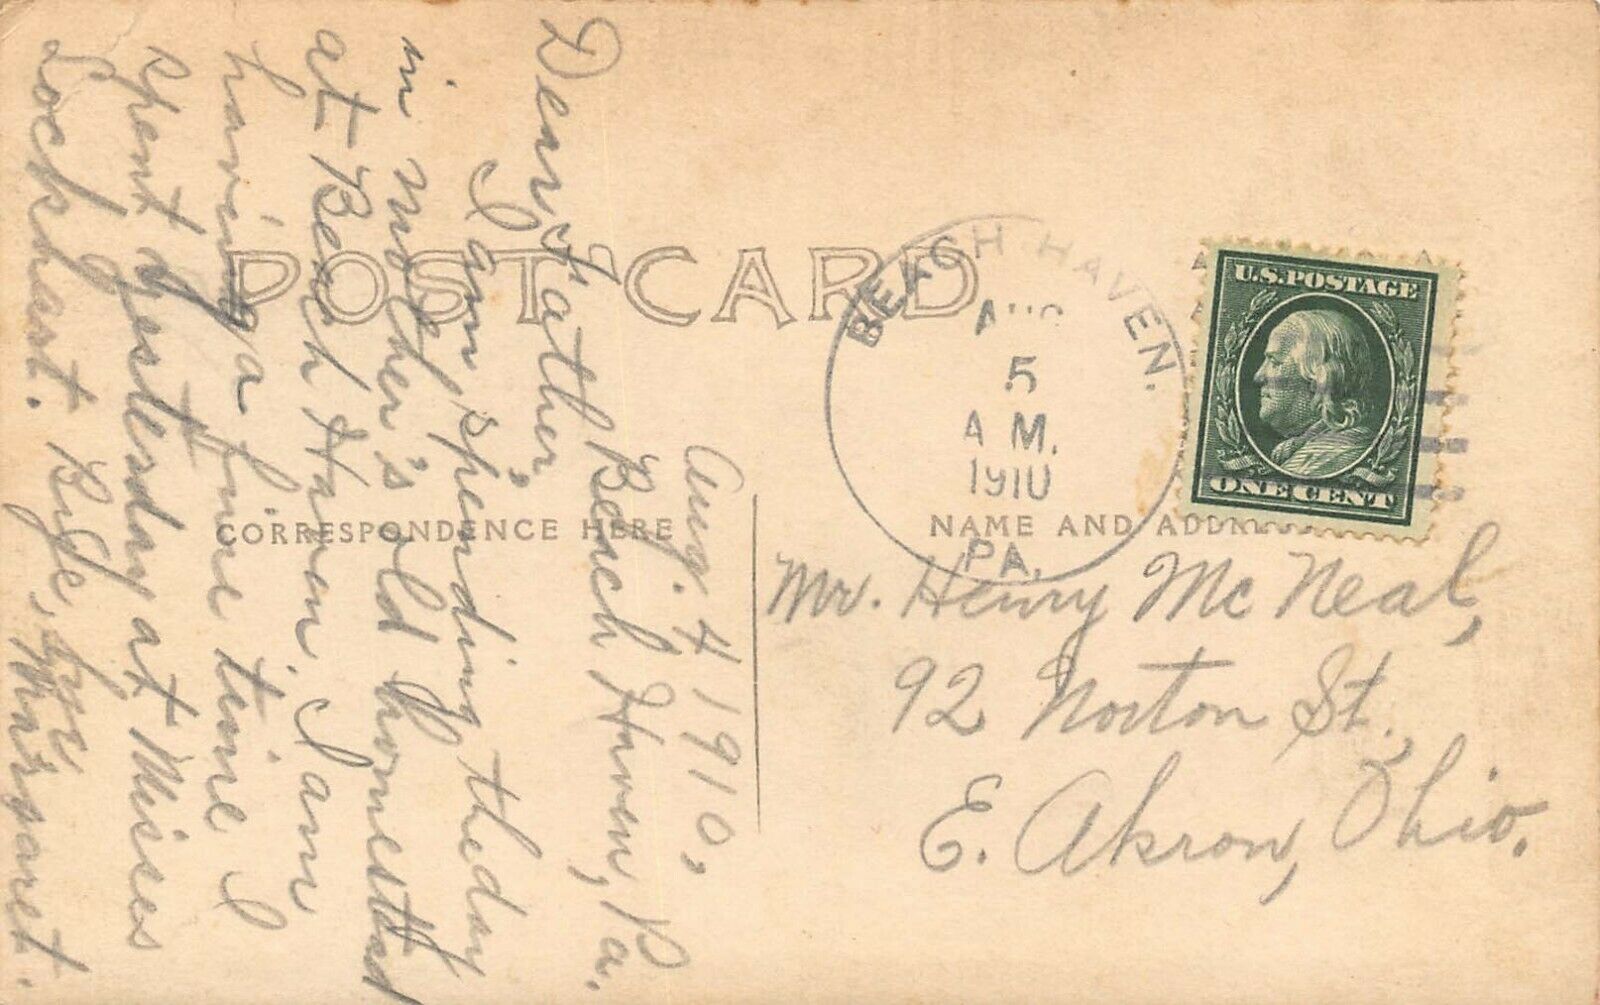 POST CARD
CORRESPONDENCE HERE
NAME AND
BEACH HAVEN.
5
A M.
1910
PA.
U.S. POSTAGE
ONE CENT
Aug. 4 1910,
Beach Haven, Pa.
Dear Father,
I am spending the day
in Mother's old homestead
at Beach Haven. I am
having a fine time I
spent yesterday at Misses
Lockheart. Bye, bye
Margaret.
Mr. Henry McNeal,
92 Norton St.,
E. Akron, Ohio.